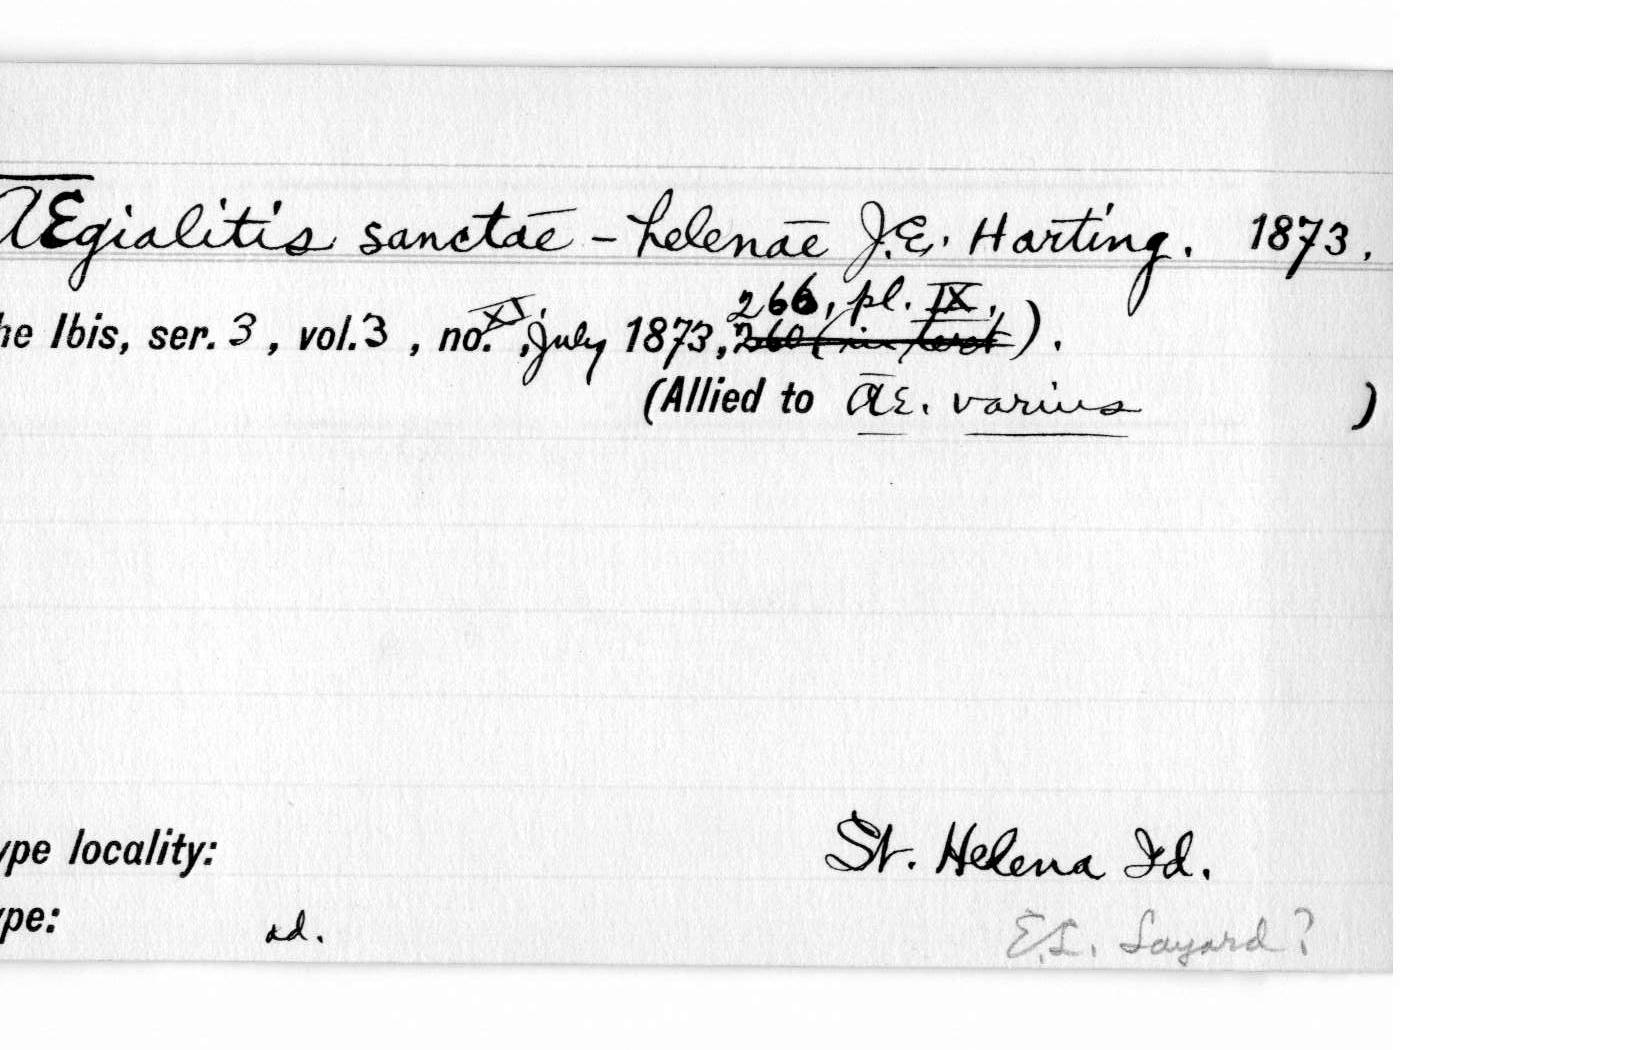 Ægialitis sanctæ-helenæ J.E. Harting. 1873.
he Ibis, ser. 3, vol. 3, no. XI, July 1873, 260 (in text).
266, pl. IX,
(Allied to Æ. varius )
ype locality: St. Helena Id.
ype: ad. E.L. Layard?